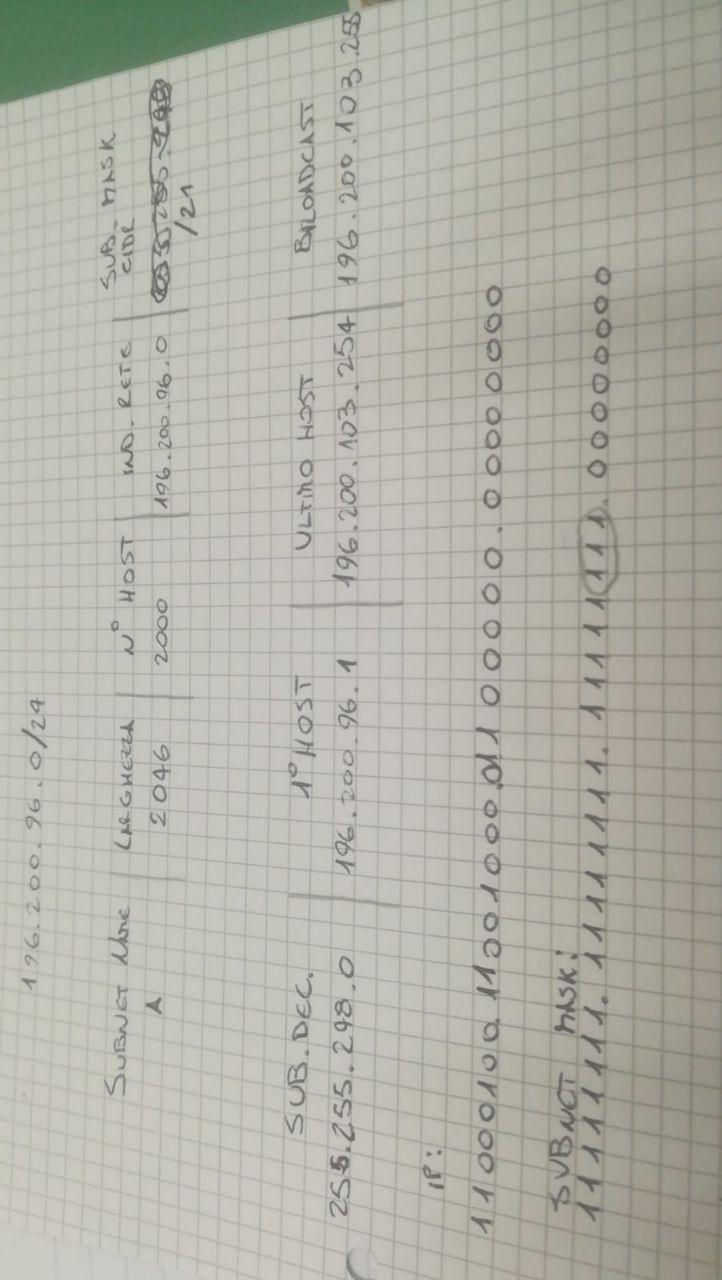 196.200.96.0/24
SUBNET NAME LARGHEZZA N° HOST IND. RETE SUB. MASK
CIDR
A 2046 2000 196.200.96.0
/21
SUB. DEC. 1° HOST ULTIMO HOST BROADCAST
255.255.248.0 196.200.96.1 196.200.103.254 196.200.103.255
IP:
11000100.11001000.01100000.00000000
SUBNET MASK:
11111111.11111111.11111111.00000000